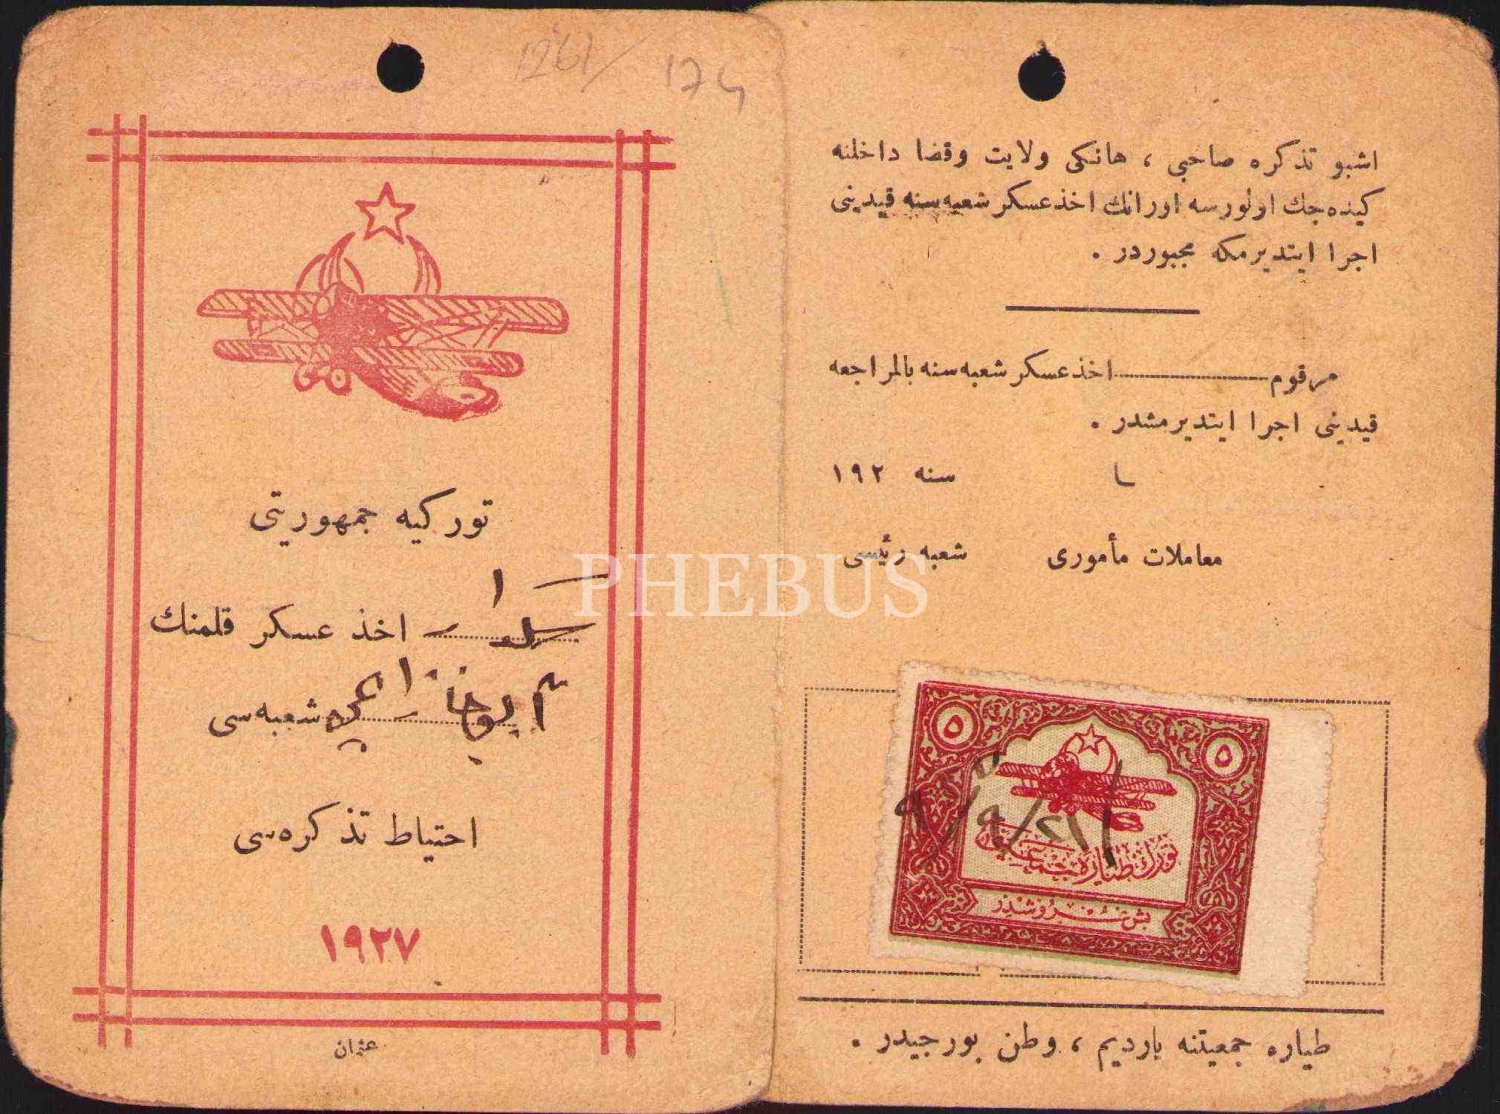 1261/
174
تورکیه جمهوریتی
اخذ عسکر قلمنك
شعبه‌سی
احتیاط تذکره‌سی
١٩٢٧
عثمان
اشبو تذکره صاحبی ، هانکی ولایت وقضا داخلنه
کیده‌جك اولورسه اورانك اخذعسکر شعبه‌سنه قیدینی
اجرا ایتدیرمکه مجبوردر .
مرقوم اخذعسکر شعبه‌سنه بالمراجعه
قیدینی اجرا ایتدیرمشدر .
سنه ١٩٢
معاملات مأموری شعبه رئیسی
PHEBUS
٥ ٥
تورك طیاره جمعیتی
بش غروشدر
طیاره جمعیتنه یاردیم ، وطن بورجیدر .